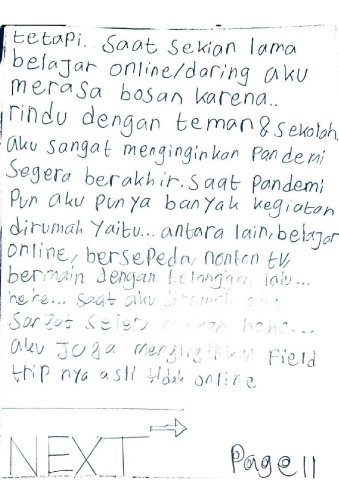 tetapi.. saat sekian lama
belajar online/daring aku
merasa bosan karena..
rindu dengan teman & sekolah
aku sangat menginginkan Pandemi
Segera berakhir. Saat Pandemi
Pun aku Punya banyak kegiatan
dirumah Yaitu... antara lain, belajar
online, bersepeda, nonton tv,
bermain dengan tetangga, lalu...
hehe... saat aku dirumah aku
hehe...
aku Juga menginginkan Field
trip nya asli tidak online
NEXT
Page 11